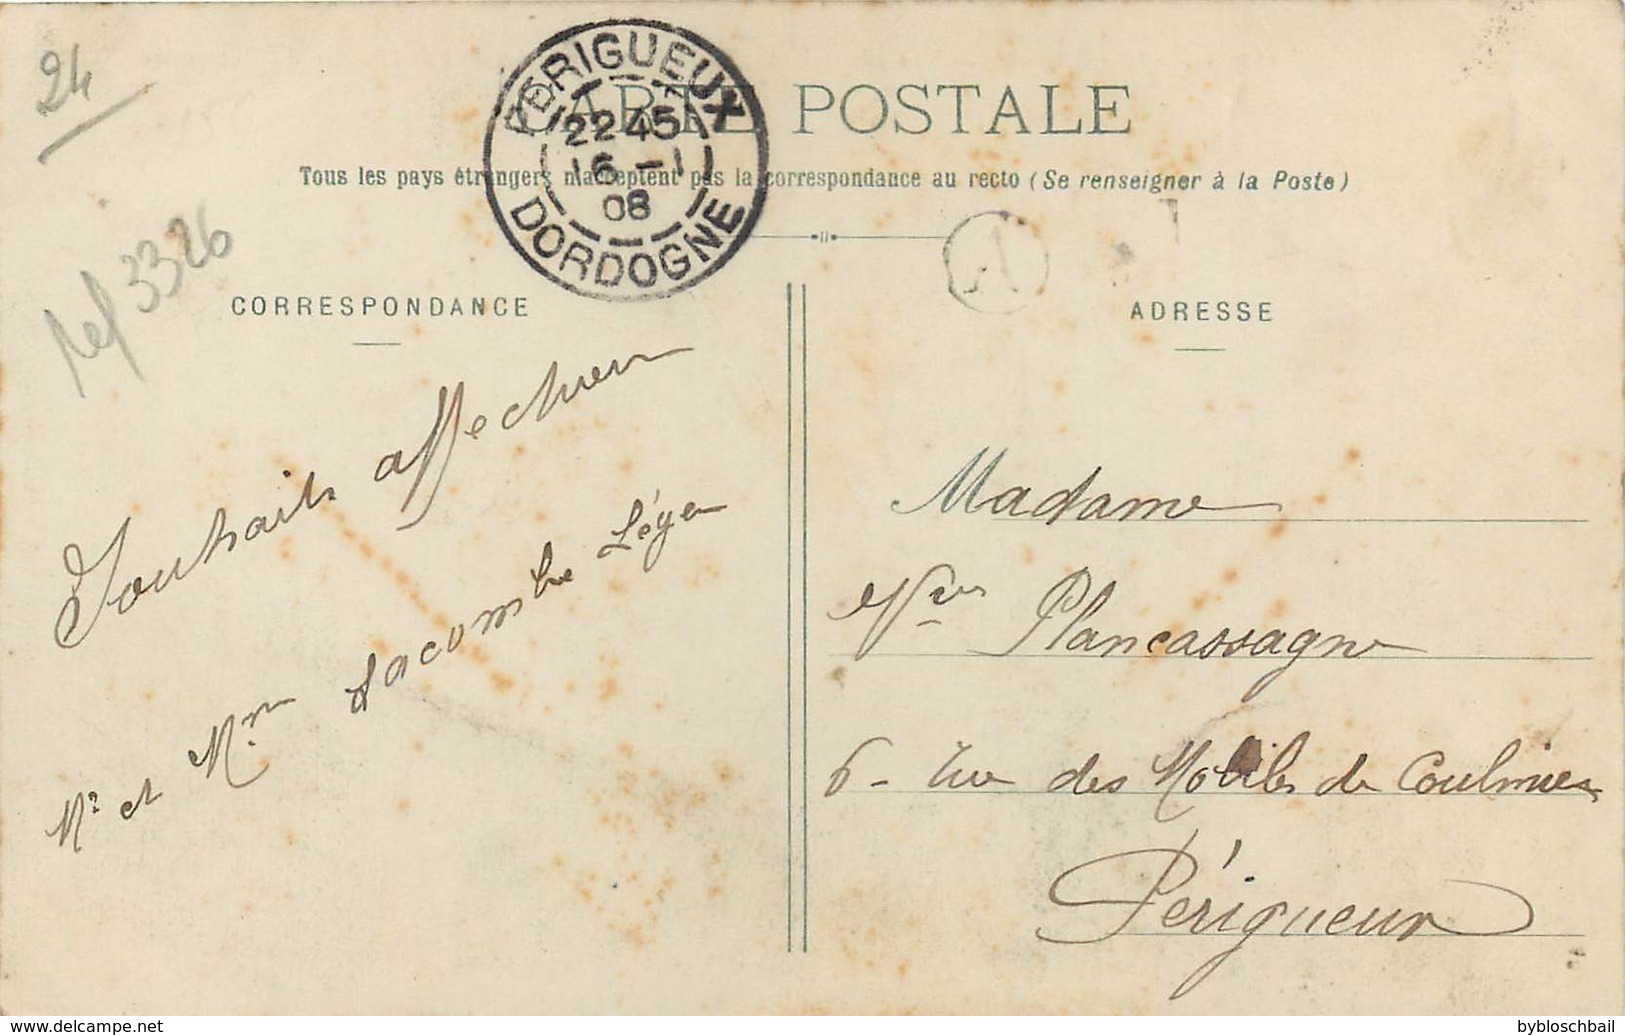 24
CARTE POSTALE
PERIGUEUX
22 45
16 -1
08
DORDOGNE
Tous les pays étrangers n'acceptent pas la correspondance au recto (Se renseigner à la Poste)
A
Ref 3326
CORRESPONDANCE
Souhaits affectueux
Mr et Mme Lacombe Léger
ADRESSE
Madame
Vve Plancassagne
6 - rue des Mobiles de Coulmiers
Périgueux
www.delcampe.net
bybloschbail